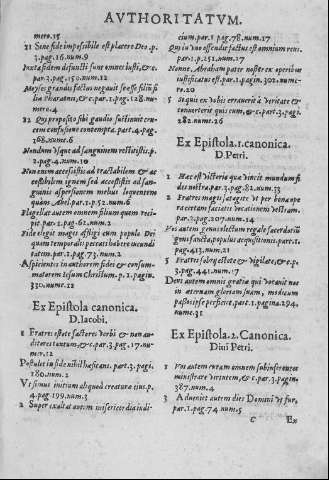 AVTHORITATVM.
mero.15
21 Sene fide impossibile est placere Deo.p.
3.pag.16.num.9
Iuxta fidem defuncti sunt omnes iusti, &c.
par.3.pag.150.num.12
Moyses grandis factus negauit se esse filiũ fi
liæ Pharaonis, &c.par.3.pag.128.nu-
mero.4
12 Qui proposito sibi gaudio sustinuit cru-
cem confusione contempta.part.4.pag.
368.num.6
Nondum vsque ad sanguinem restitistis.p.
2.pag.4.num.10
Non enim accessistis ad tractabilem & ac
cessibilem ignem sed accessistis ad san-
guinis aspersionem melius loquentem
quam Abel.par.1.p.52.num.6
Flagellat autem omnem filium quem reci-
pit.par.1.pag.62.num.2
Fide elegit magis affligi cum populo Dei
quam temporalis peccati habere iucundi
tatem.par.1.pag.73.num.2
Aspicientes in authorem fidei & consum-
matorem Iesum Christum.p.2.pagin.
330.num.12
Ex Epistola canonica.
D.Iacobi.
1 Fratres estote factores verbi & non au-
ditores tantum, &c.par.3.pag.17.nu-
mer.12
Postulet in fide nihil hæsitans.part.3.pagi.
180.num.2
Vt simus initium aliquod creaturæ eius.p.
4.pag.199.num.3
2 Super exaltat autem misericordia iudi-
cium.par.1.pag.78.num.17
Qui in vno offendit factus est omnium reus.
par.1.p.251.num.27
Nonne Abraham pater noster ex operibus
iustificatus est.par.1.pagin.302.nume-
ro.20
5 Si quis ex vobis errauerit à veritate &
conuerterit quis eum, &c.part.3.pagi.
282.nume.26
Ex Epistola.1.canonica.
D.Petri.
1 Hæc est victoria quæ vincit mundum fi
des nostra.par.3.pag.82.num.33
2 Fratres magis satagite vt per bona ope
ra certam faciatis vocationem vestram.
par.2.pag.207.num.14
Vos autem genus electum regale sacerdotiũ
gens sancta, populus acquisitionis.part.1.
pag.413.num.21
5 Fratres sobrij estote & vigilate, &c.p.
3.pag.441.num.17
Deus autem omnis gratiæ qui vocauit nos
in æternam gloriam suam, modicum
passos ipse perficiet.part.1.pagina.294,
nume.31
Ex Epistola.2.Canonica.
Diui Petri.
1 Vos autem curam omnem subinferentes
ministrate virtutem, &c.par.3.pagin.
387.num.4
3 Adueniet autem dies Domini vt fur,
par.1.pag.74.num.5
C Ex